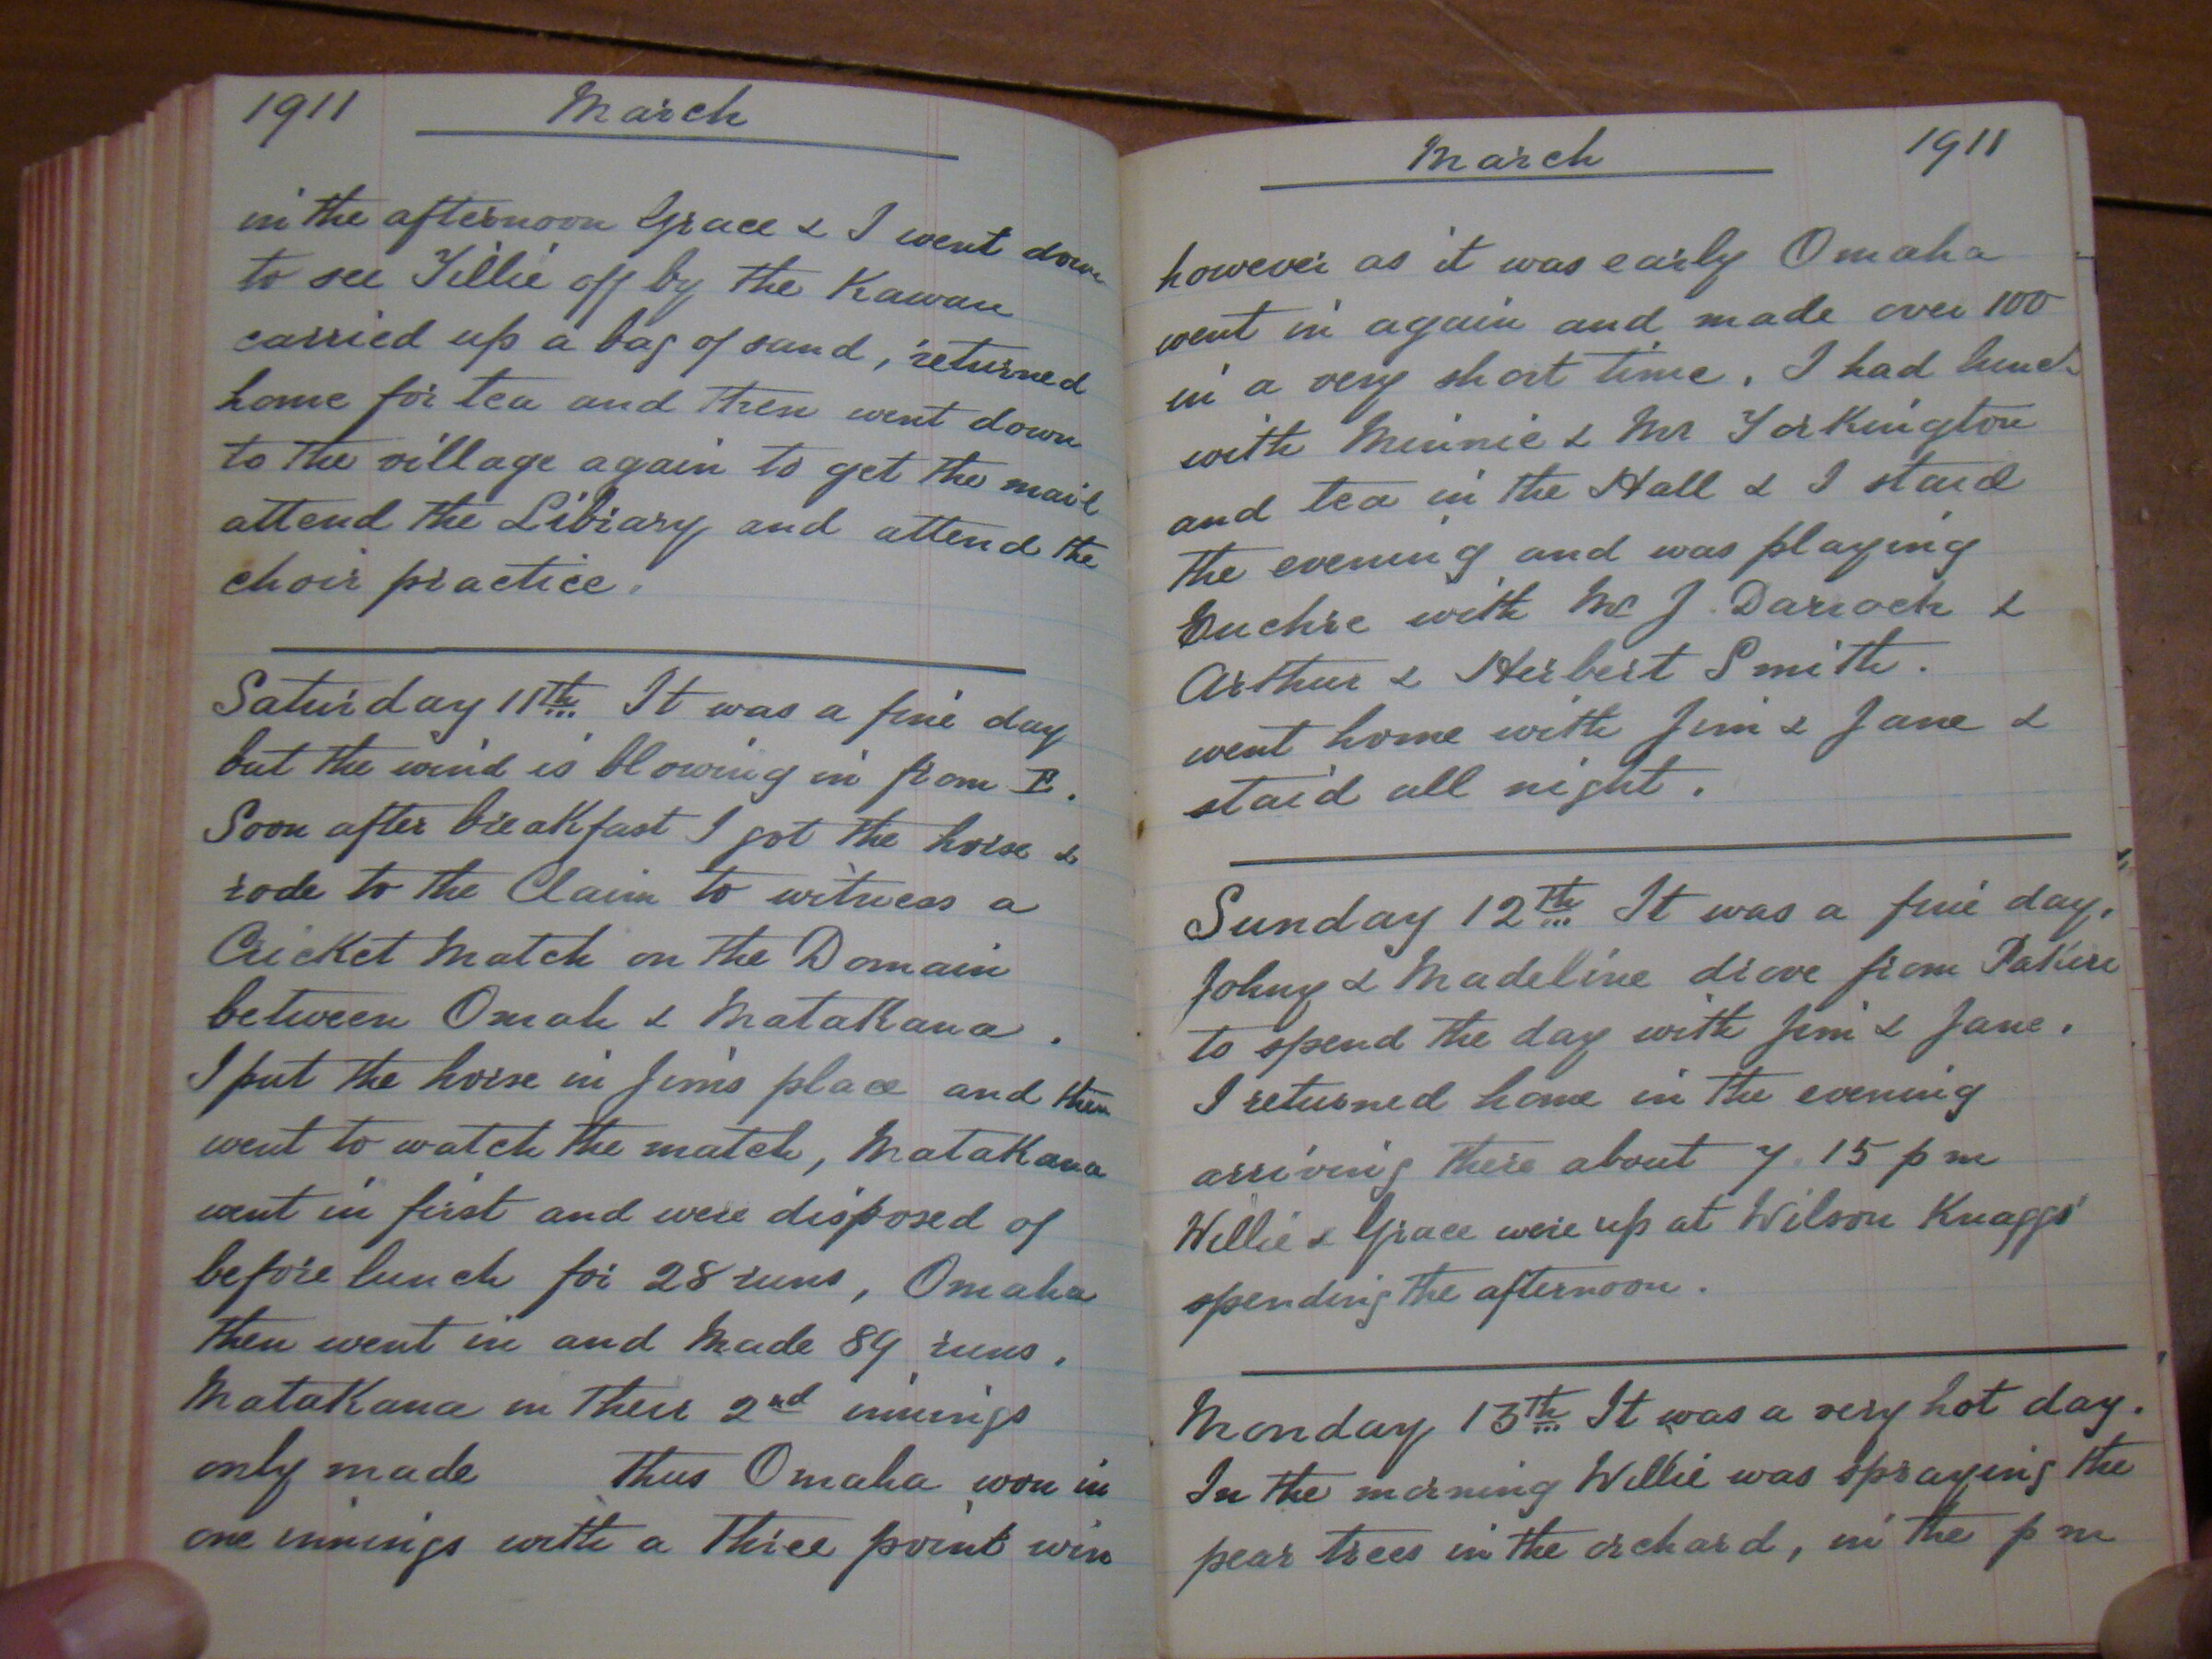 1911 March
in the afternoon Grace & I went down
to see Tillie off by the Kawau
carried up a bag of sand, returned
home for tea and then went down
to the village again to get the mail
attend the Library and attend the
choir practice.
Saturday 11th It was a fine day
but the wind is blowing in from E.
Soon after breakfast I got the horse &
rode to the Claim to witness a
Cricket Match on the Domain
between Omah & Matakana.
I put the horse in Jim's place and then
went to watch the match, Matakana
went in first and were disposed of
before lunch for 28 runs, Omaha
then went in and made 89 runs.
Matakana in their 2nd innings
only made thus Omaha won in
one innings with a three point win
March 1911
however as it was early Omaha
went in again and made over 100
in a very short time. I had lunch
with Minnie & Mr Torkington
and tea in the Hall & I staid
the evening and was playing
Euchre with Mr J. Darroch &
Arthur & Herbert Smith.
went home with Jim & Jane &
staid all night.
Sunday 12th It was a fine day.
Johny & Madeline drove from Pakiri
to spend the day with Jim & Jane.
I returned home in the evening
arriving there about 7.15 pm
Willie & Grace were up at Wilson Knaggs'
spending the afternoon.
Monday 13th It was a very hot day.
In the morning Willie was spraying the
pear trees in the orchard, in the pm